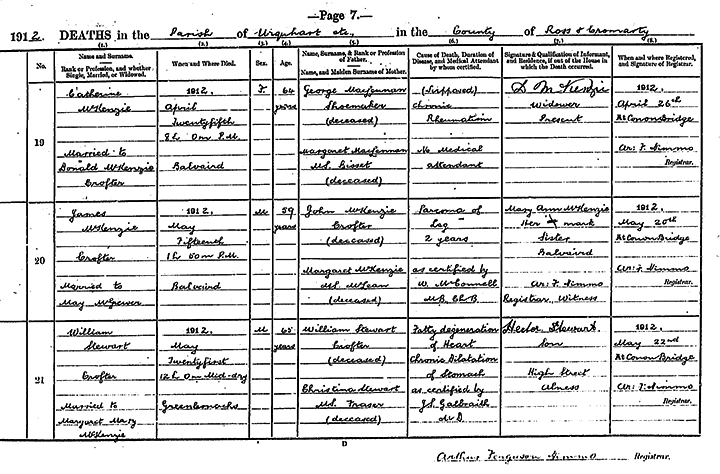 —Page 7.—
1912. DEATHS in the Parish of Urquhart etc. in the County of Ross & Cromarty
(1.) (2.) (3.) (4.) (5.) (6.) (7.) (8.)
No.
Name and Surname.
Rank or Profession, and whether
Single, Married, or Widowed.
When and Where Died.
Sex.
Age.
Name, Surname, & Rank or Profession
of Father.
Name, and Maiden Surname of Mother.
Cause of Death, Duration of
Disease, and Medical Attendant
by whom certified.
Signature & Qualification of Informant,
and Residence, if out of the House in
which the Death occurred.
When and where Registered,
and Signature of Registrar.
19
Catherine
McKenzie
Married to
Donald McKenzie
Crofter
1912,
April
Twentyfifth
8h 0m P.M.
Balvaird
F
64
years
George MacLennan
Shoemaker
(deceased)
Margaret MacLennan
M.S. Bisset
(deceased)
(Supposed)
chronic
Rheumatism
No Medical
attendant
D McKenzie
Widower
Present
1912,
April 26th
At Conon Bridge
Ar: F. Nimmo
Registrar.
20
James
McKenzie
Crofter
Married to
May McGrewer
1912,
May
Fifteenth
Balvaird
M
59
years
John McKenzie
Crofter
(deceased)
Margaret McKenzie
M.S. McLean
(deceased)
Sarcoma of
Leg
2 years
as certified by
W. McConnell
M.B. Ch.B.
Mary Ann McKenzie
Her X mark
Sister
Balvaird
Ar: F. Nimmo
Registrar, Witness
1912,
May 20th
At Conon Bridge
Ar: F. Nimmo
Registrar.
21
William
Stewart
Crofter
Married to
Margaret Mary
McKenzie
1912,
May
Twentyfirst
12h 0m Mid-day
M
65
years
William Stewart
Crofter
(deceased)
Christina Stewart
M.S. Fraser
(deceased)
Fatty degeneration
of Heart
Chronic Dilatation
of Stomach
as certified by
J.S. Galbraith
M.D
Hector Stewart.
Son
High Street
Alness
1912,
May 22nd
At Conon Bridge
Ar: F. Nimmo
Registrar.
D
Arthur Ferguson Nimmo Registrar.